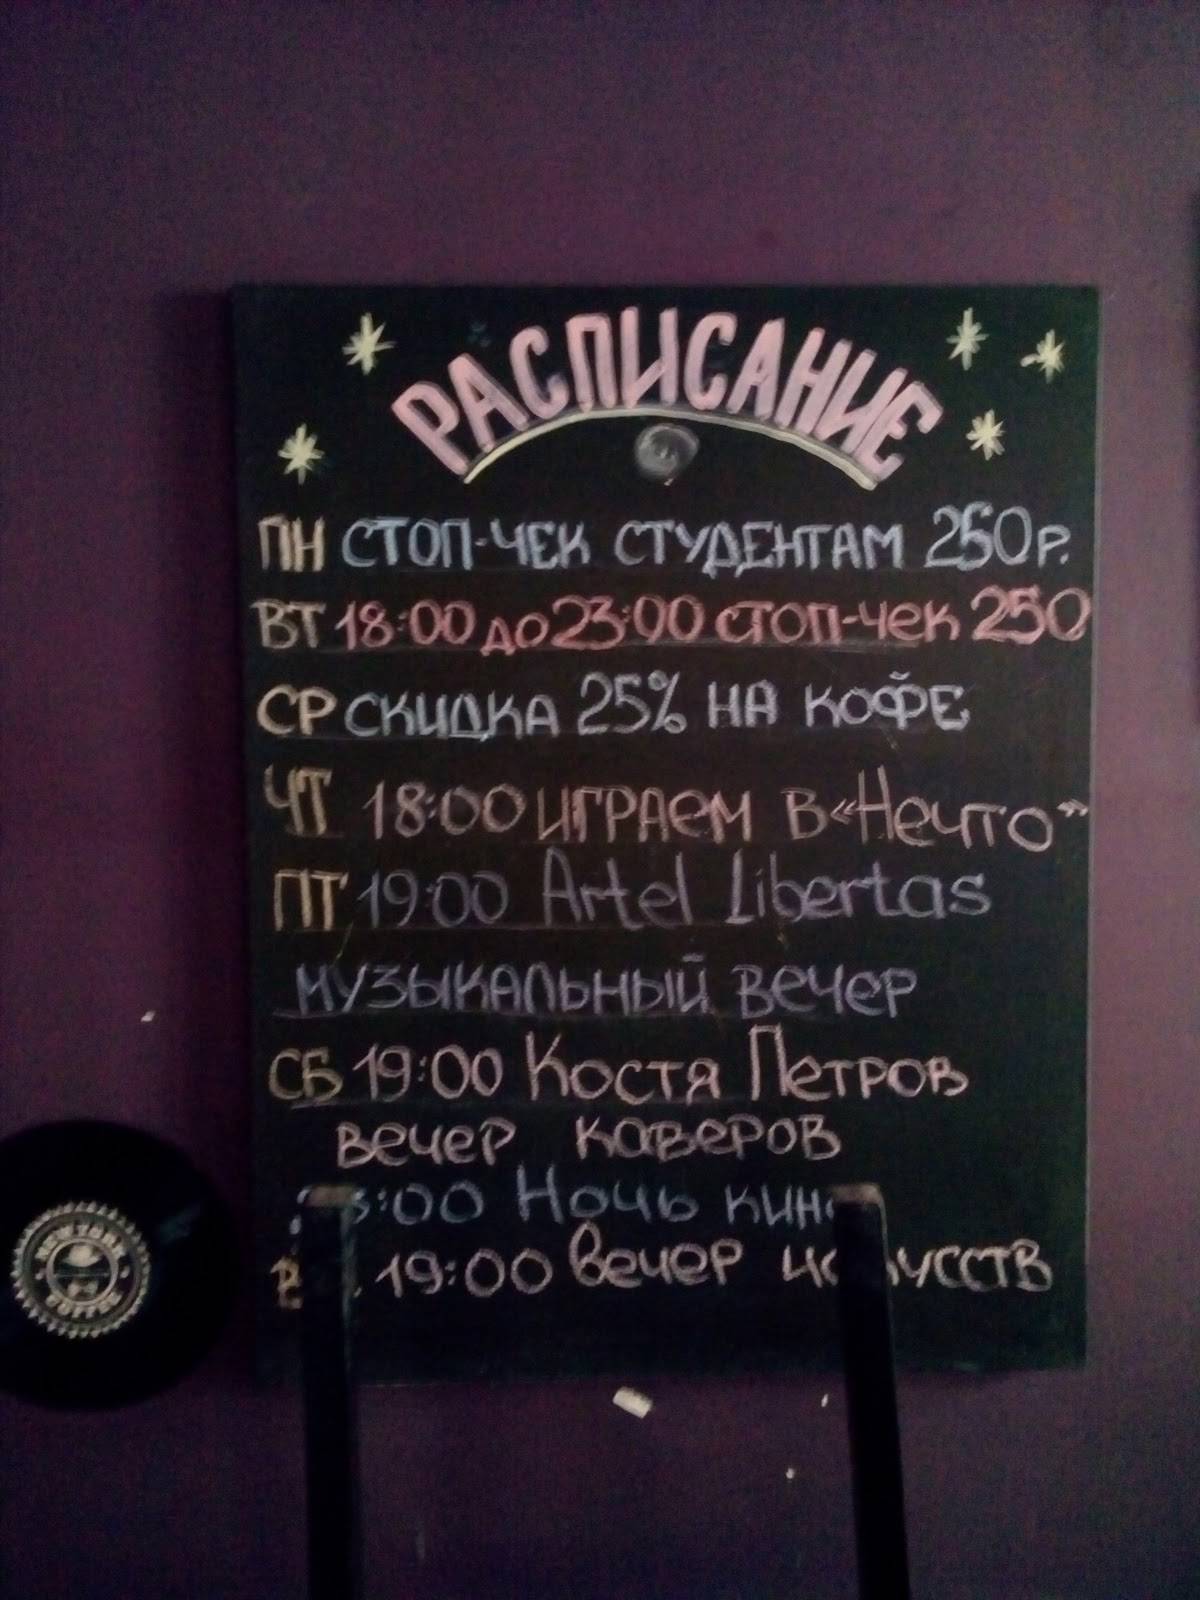 РАСПИСАНИЕ
ПН СТОП-ЧЕК СТУДЕНТАМ 250р.
ВТ 18:00 до 23:00 стоп-чек 250
СР СКИДКА 25% НА КОФЕ
ЧТ 18:00 ИГРАЕМ В «Нечто"
ПТ 19:00 Artel Libertas
МУЗЫКАЛЬНЫЙ ВЕЧЕР
СБ 19:00 Костя Петров
вечер каверов
Ночь
19:00 вечер
NEW YORK
COFFEE